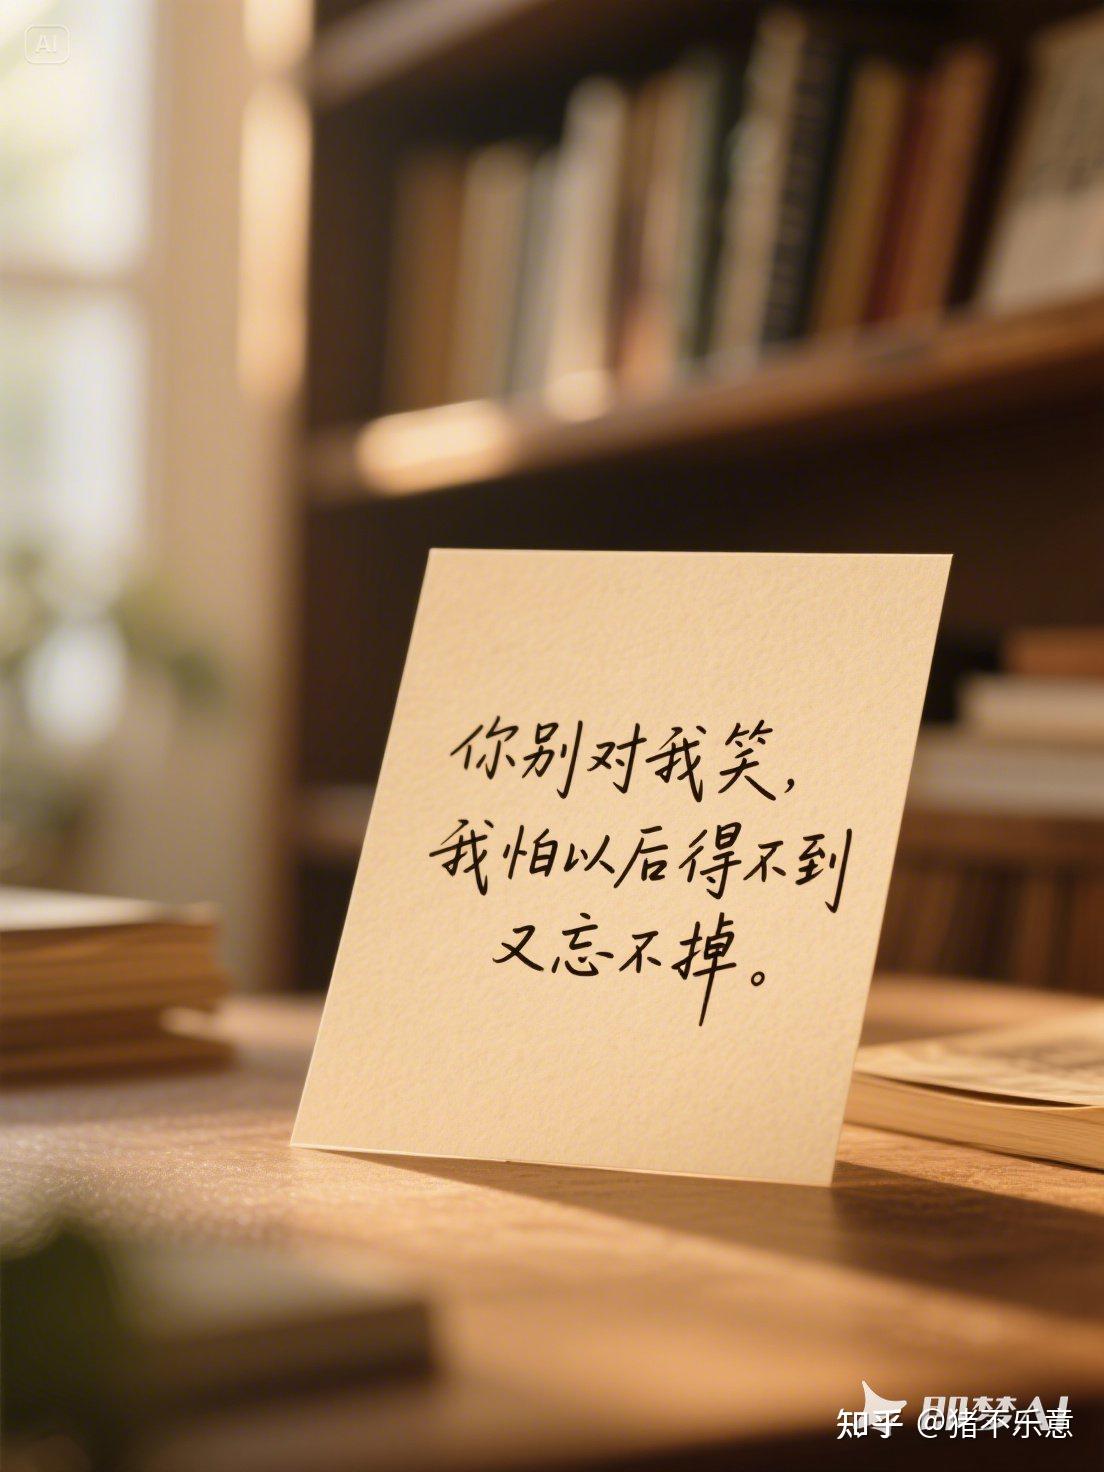 AI
你别对我笑，
我怕以后得不到
又忘不掉。
即梦AI
知乎 @猪不乐意